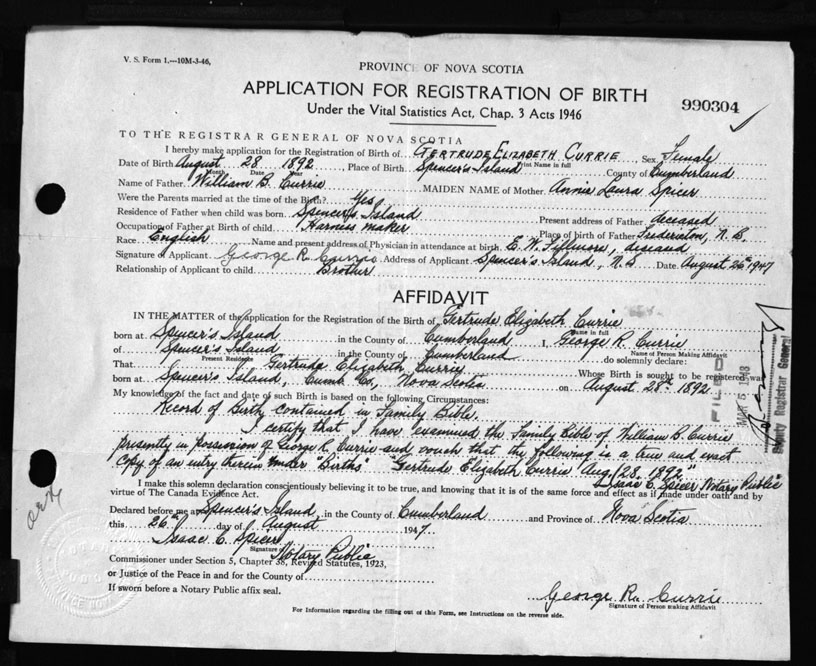 V. S. Form 1.—10M-3-46,
PROVINCE OF NOVA SCOTIA
APPLICATION FOR REGISTRATION OF BIRTH
990304
Under the Vital Statistics Act, Chap. 3 Acts 1946
TO THE REGISTRAR GENERAL OF NOVA SCOTIA
I hereby make application for the Registration of Birth of GERTRUDE ELIZABETH CURRIE Sex Female
Print Name in full
Date of Birth August 28 1892 Place of Birth Spencer's Island County of Cumberland
Month Date Year
Name of Father William B. Currie MAIDEN NAME of Mother Annie Laura Spicer
Were the Parents married at the time of the Birth? Yes
Residence of Father when child was born Spencer's Island Present address of Father deceased
Occupation of Father at Birth of child Harness maker Place of birth of Father Fredericton, N. B.
Race English Name and present address of Physician in attendance at birth C. W. Fillmore, deceased
Signature of Applicant George R. Currie Address of Applicant Spencer's Island, N.S Date August 26th 1947
Relationship of Applicant to child Brother
AFFIDAVIT
IN THE MATTER of the application for the Registration of the Birth of Gertrude Elizabeth Currie
Name in full
born at Spencer's Island in the County of Cumberland I, George R. Currie
Name of Person Making Affidavit
of Spencer's Island in the County of Cumberland do solemnly declare:
Present Residence
That Gertrude Elizabeth Currie Whose Birth is sought to be registered was
born at Spencer's Island, Cumb. Co., Nova Scotia on August 28th 1892
My knowledge of the fact and date of such Birth is based on the following Circumstances:
Record of Birth contained in Family Bible.
I certify that I have examined the Family Bible of William B. Currie
presently in possession of George R. Currie and vouch that the following is a true and exact
copy of an entry therein under "Births" "Gertrude Elizabeth Currie Aug 28. 1892"
Isaac C. Spicer Notary Public
I make this solemn declaration conscientiously believing it to be true, and knowing that it is of the same force and effect as if made under oath and by
virtue of The Canada Evidence Act.
Declared before me at Spencer's Island, in the County of Cumberland and Province of Nova Scotia
this 26th day of August 1947
Isaac C. Spicer
Signature
Notary Public
Commissioner under Section 5, Chapter 38, Revised Statutes, 1923,
or Justice of the Peace in and for the County of
If sworn before a Notary Public affix seal.
George R. Currie
Signature of Person making Affidavit
For Information regarding the filling out of this Form, see Instructions on the reverse side.
FILED
MAR 5 1948
Deputy Registrar General